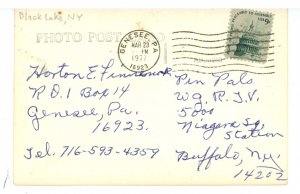 Black Lake, NY
PHOTO POST
GENESEE, PA
MAR 23
PM
1977
16923
Horton E.
R.D.1 Box 14
Genesee, Pa.
16923.
Tel. 716-593-4359
Pin Pals
W.G.R.T.V.
5000
Niagara Sq.
Station
Buffalo, N.Y.
14202